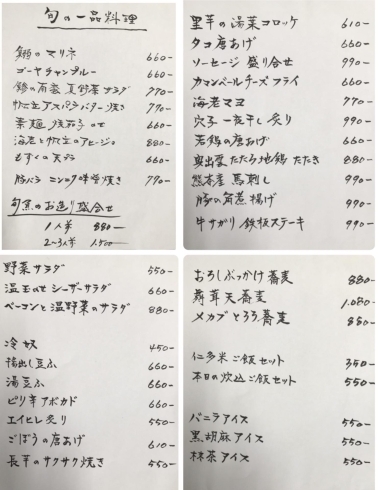 旬の一品料理
鯛のマリネ 660-
ゴーヤチャンプルー 660-
鯵の南蛮 夏野菜サラダ 770-
帆立アスパラバター焼き 770-
素麺 焼茄子のせ 660-
海老と帆立のアヒージョ 880-
もずくの天ぷら 660-
豚バラ ニンニク味噌焼き 770-
旬魚のお造り盛合せ
1人半 880-
2〜3人半 1,500-
里芋の湯葉コロッケ 610-
タコ唐あげ 660-
ソーセージ 盛り合せ 990-
カマンベールチーズフライ 660-
海老マヨ 770-
穴子一夜干し炙り 990-
若鶏の唐あげ 660-
奥出雲たたら地鶏 たたき 880-
熊本産 馬刺し 990-
豚の角煮揚げ 990-
牛サガリ 鉄板ステーキ 990-
野菜サラダ 550-
温玉のせシーザーサラダ 660-
ベーコンと温野菜のサラダ 880-
冷奴 450-
揚出し豆ふ 660-
湯豆ふ 660-
ピリ辛アボカド 660-
エイヒレ炙り 550-
ごぼうの唐あげ 610-
長芋のサクサク焼き 550-
おろしぶっかけ蕎麦 880-
舞茸天蕎麦 1,080-
メカブとろろ蕎麦 880-
仁多米ご飯セット 350-
本日の炊込ご飯セット 550-
バニラアイス 550-
黒胡麻アイス 550-
抹茶アイス 550-